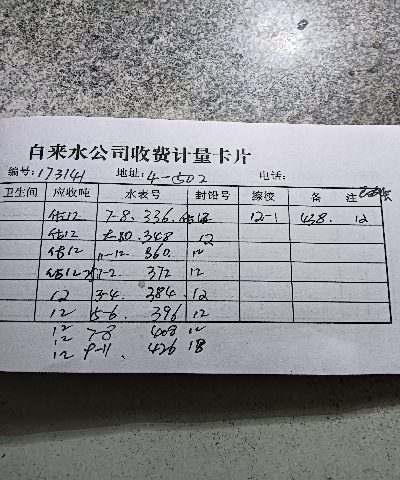 自来水公司收费计量卡片
编号:173141 地址:4-502 电话:
卫生间 应收吨 水表号 封铅号 缘校 备 注
估12 7-8. 336. 估12 12-1 438. 12
估12 348 12
估12 11-12. 360. 12
估12 1-2. 372 12
12 3-4. 384. 12
12 5-6. 396 12
12 7-8 408 12
12 9-11. 426 18